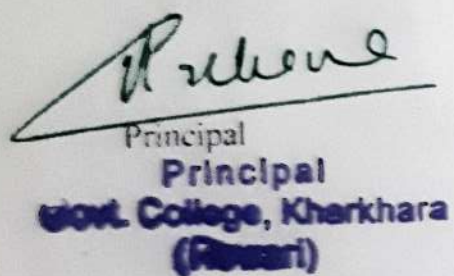 Principal
Principal
Govt. College, Kharkhara
(Rewari)